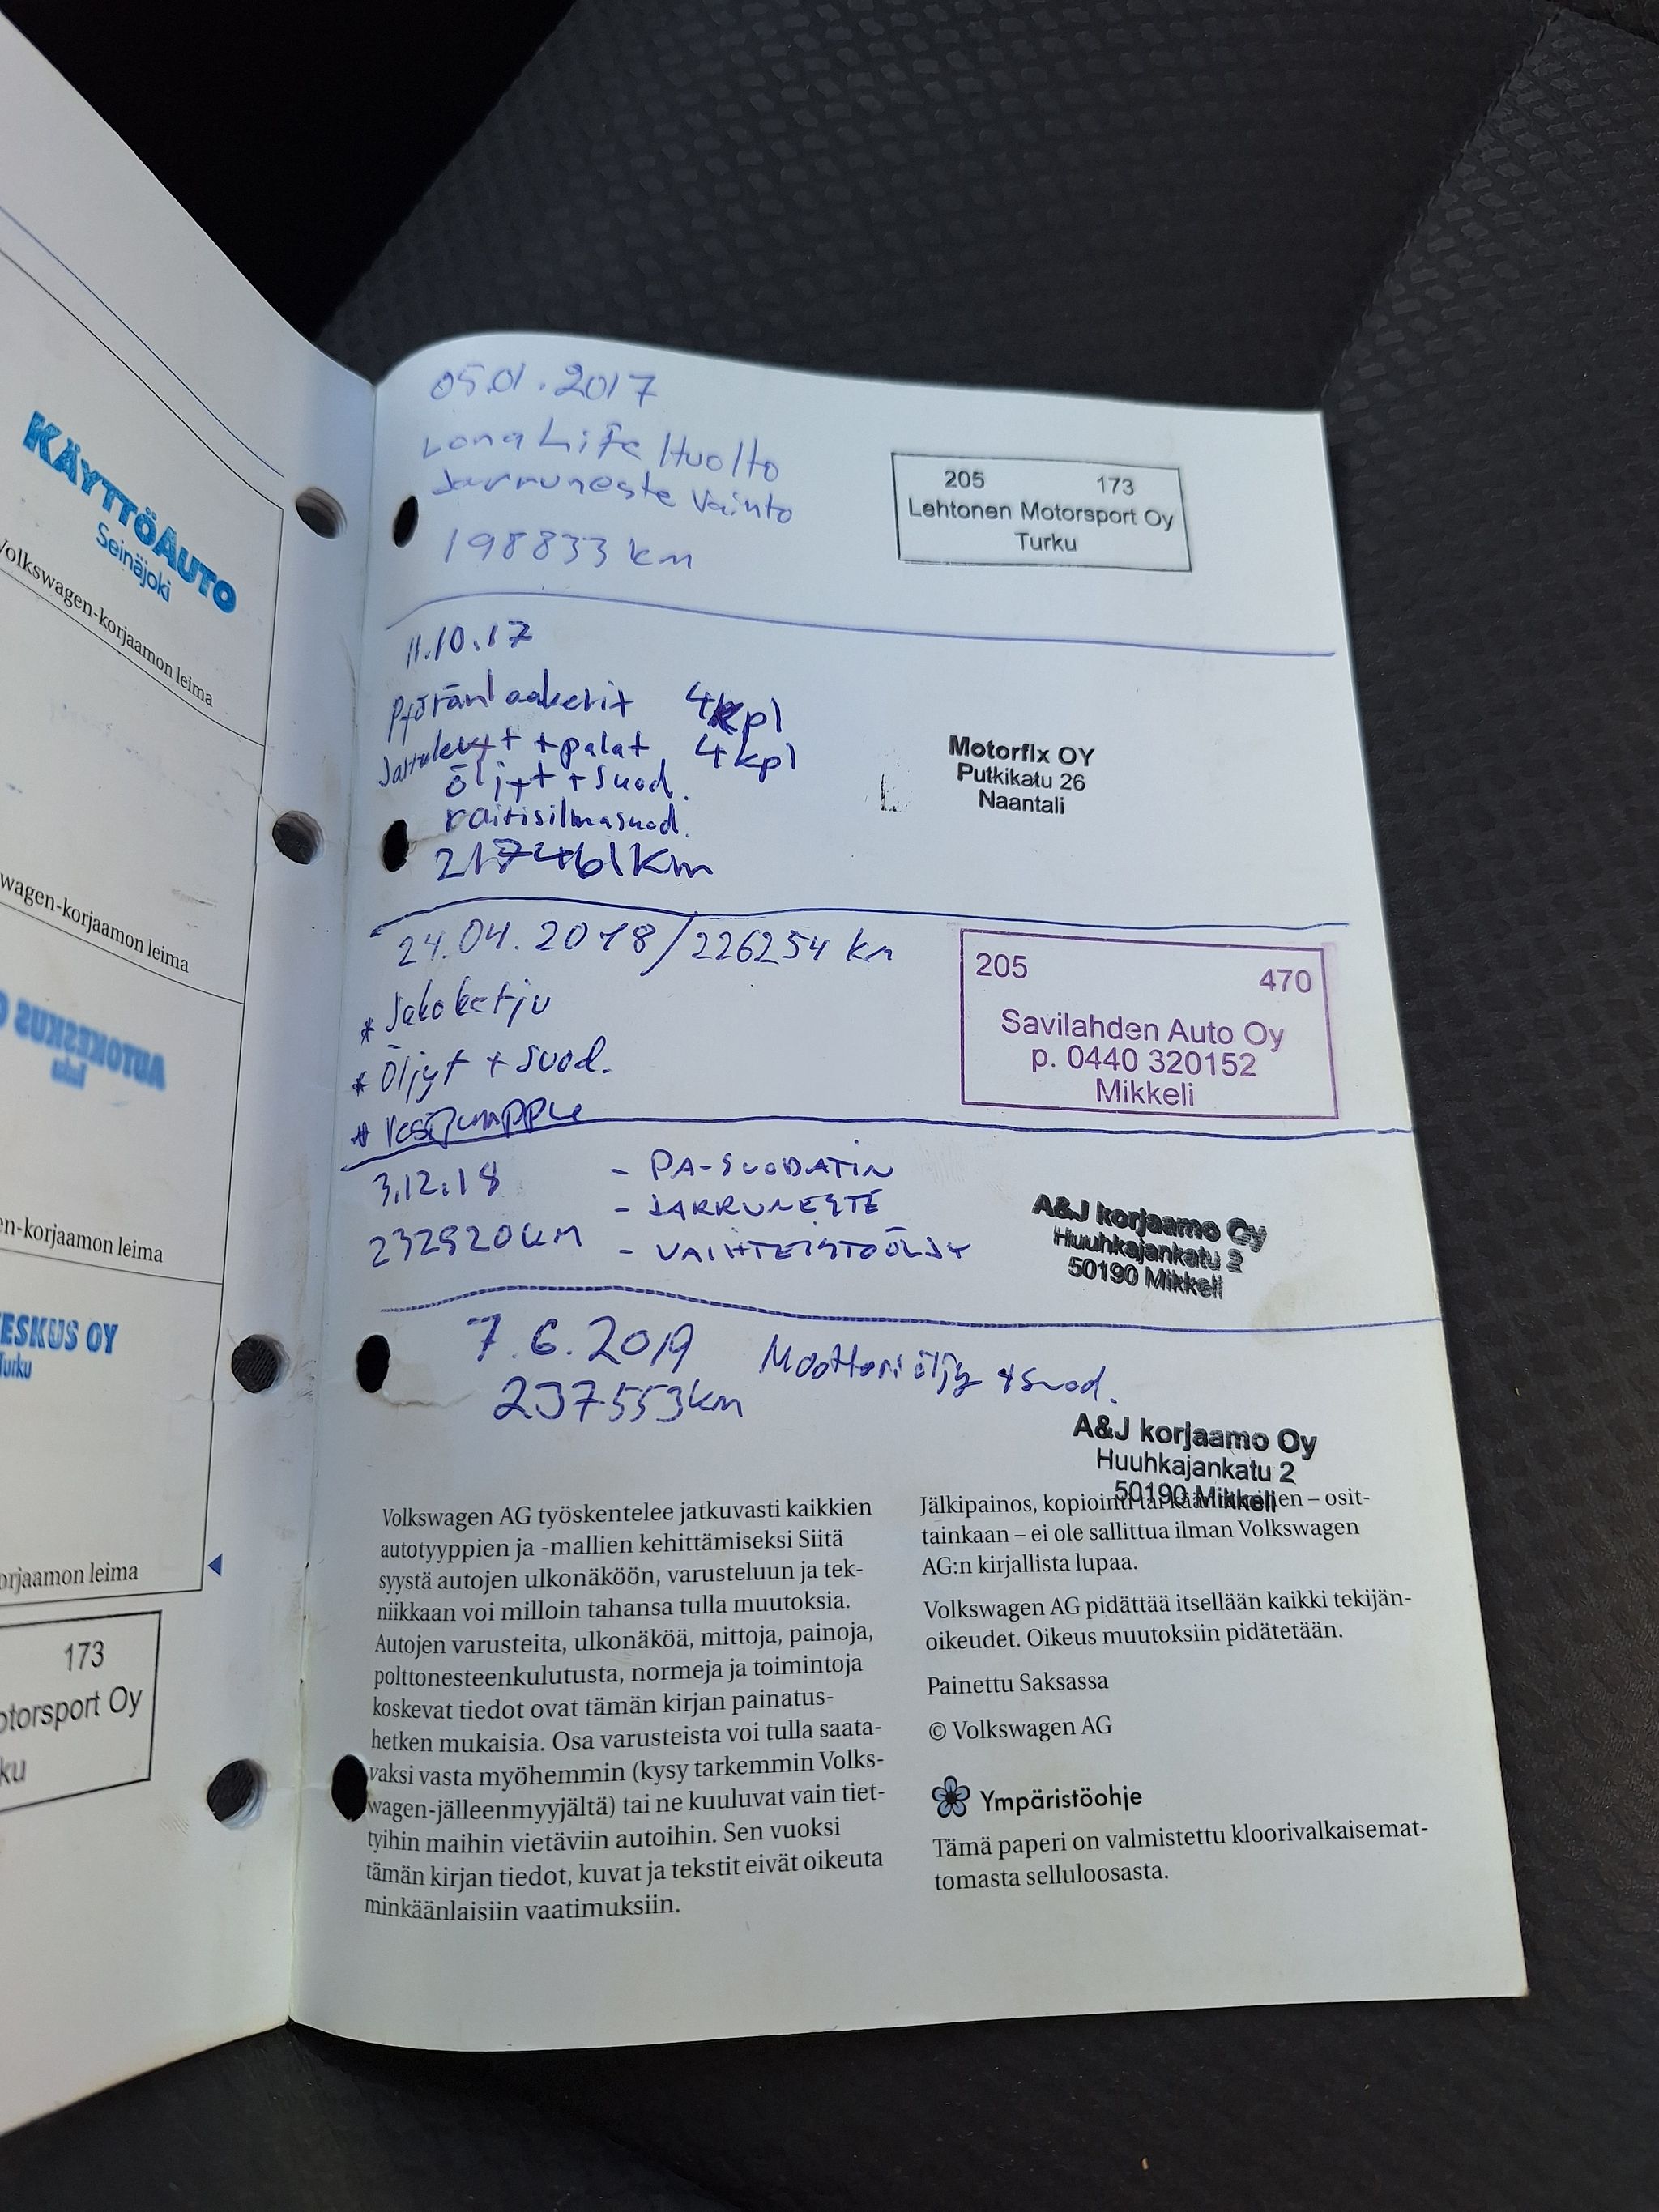 KÄYTTÖAUTO
Seinäjoki
Volkswagen-korjaamon leima
wagen-korjaamon leima
AUTOKESKUS O
en-korjaamon leima
ESKUS OY
Turku
orjaamon leima
173
otorsport Oy
ku
05.01.2017
Long Life Huolto
Jarruneste Vaihto
198833 km
205 173
Lehtonen Motorsport Oy
Turku
11.10.17
Pyöränlaakerit 4kpl
Jarrulevyt + palat 4kpl
Öljyt + suod.
raitisilmasuod.
217461km
Motorfix OY
Putkikatu 26
Naantali
24.04.2018/226254 km
* Jakoketju
* Öljyt + suod.
* Vesipumppu
205 470
Savilahden Auto Oy
p. 0440 320152
Mikkeli
3.12.18 - PA-SUODATIN
- JARRUNESTE
232920KM - VAIHTEISTOÖLJY
A&J korjaamo Oy
Huuhkajankatu 2
50190 Mikkeli
7.6.2019 Moottoriöljy + suod.
237553km
A&J korjaamo Oy
Huuhkajankatu 2
50190 Mikkeli
Volkswagen AG työskentelee jatkuvasti kaikkien
autotyyppien ja -mallien kehittämiseksi Siitä
syystä autojen ulkonäköön, varusteluun ja tek-
niikkaan voi milloin tahansa tulla muutoksia.
Autojen varusteita, ulkonäköä, mittoja, painoja,
polttonesteenkulutusta, normeja ja toimintoja
koskevat tiedot ovat tämän kirjan painatus-
hetken mukaisia. Osa varusteista voi tulla saata-
vaksi vasta myöhemmin (kysy tarkemmin Volks-
wagen-jälleenmyyjältä) tai ne kuuluvat vain tiet-
tyihin maihin vietäviin autoihin. Sen vuoksi
tämän kirjan tiedot, kuvat ja tekstit eivät oikeuta
minkäänlaisiin vaatimuksiin.
Jälkipainos, kopiointi tai kääntäminen – osit-
tainkaan – ei ole sallittua ilman Volkswagen
AG:n kirjallista lupaa.
Volkswagen AG pidättää itsellään kaikki tekijän-
oikeudet. Oikeus muutoksiin pidätetään.
Painettu Saksassa
© Volkswagen AG
Ympäristöohje
Tämä paperi on valmistettu kloorivalkaisemat-
tomasta selluloosasta.